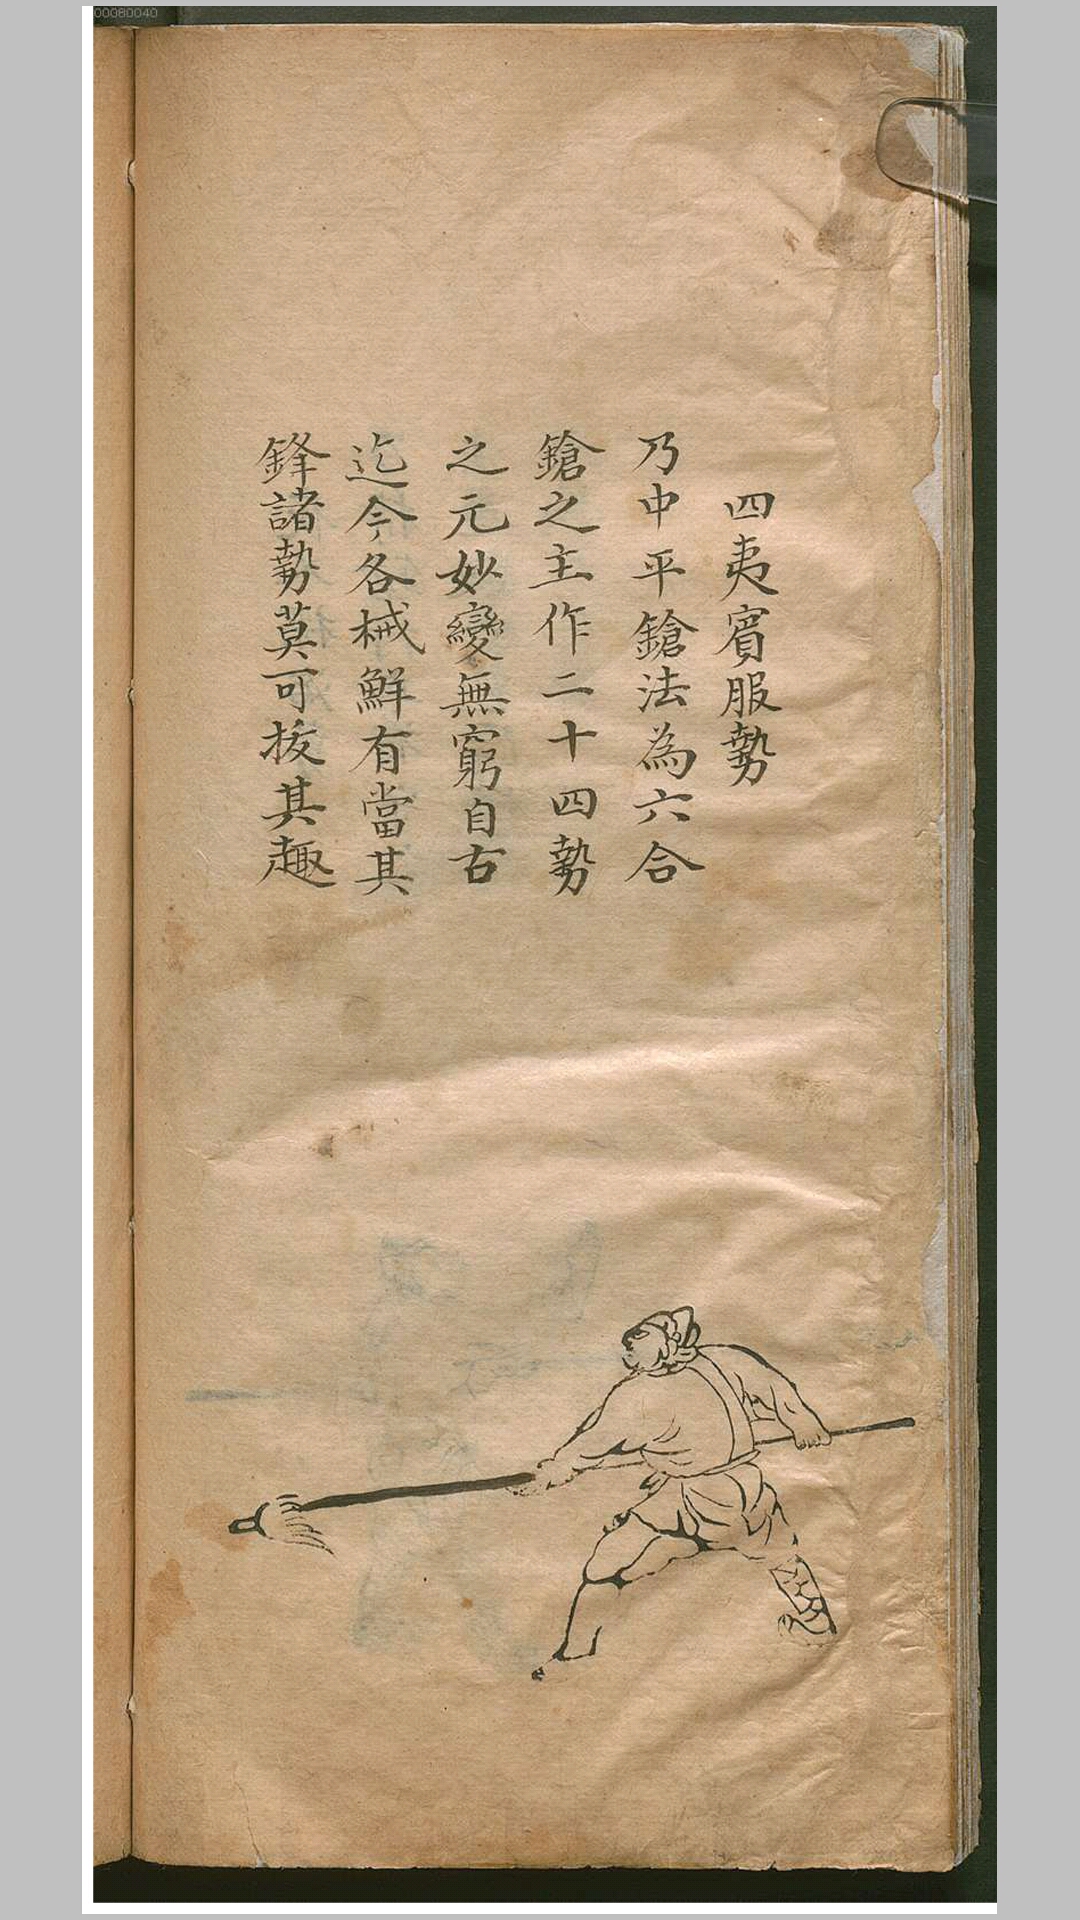 00080040
四夷賓服勢
乃中平鎗法為六合
鎗之主作二十四勢
之元妙變無窮自古
迄今各械鮮有當其
鋒諸勢莫可拔其趣